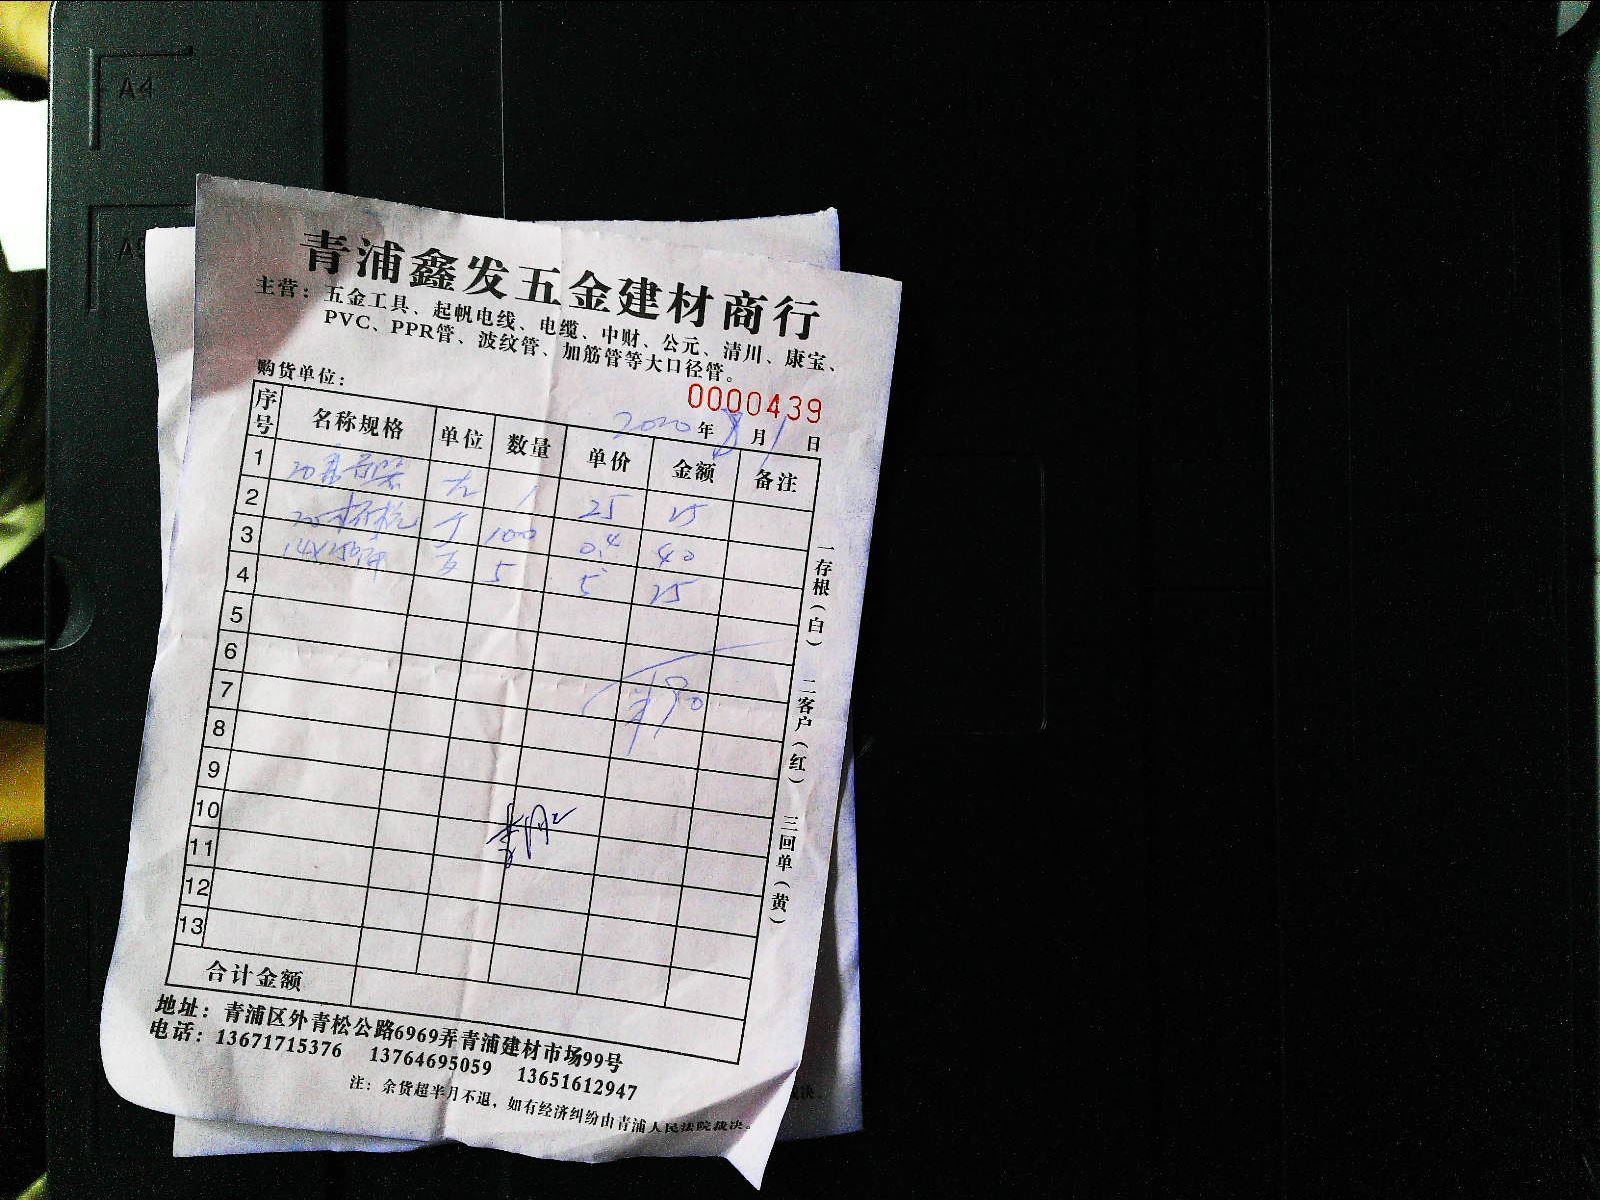 A4
青浦鑫发五金建材商行
主营：五金工具、起帆电线、电缆、中财、公元、清川、康宝、
PVC、PPR管、波纹管、加筋管等大口径管。
购货单位：
0000439
2020年 月1日
序号 名称规格 单位 数量 单价 金额 备注
1 20 1 25 25
2 20 个 100 0.4 40
3 14X150 5 5 25
4
5
6
7 90
8
9
10
11
12
13
合计金额
一存根（白） 二客户（红） 三回单（黄）
地址：青浦区外青松公路6969弄青浦建材市场99号
电话：13671715376 13764695059 13651612947
注：余货超半月不退，如有经济纠纷由青浦人民法院裁决。